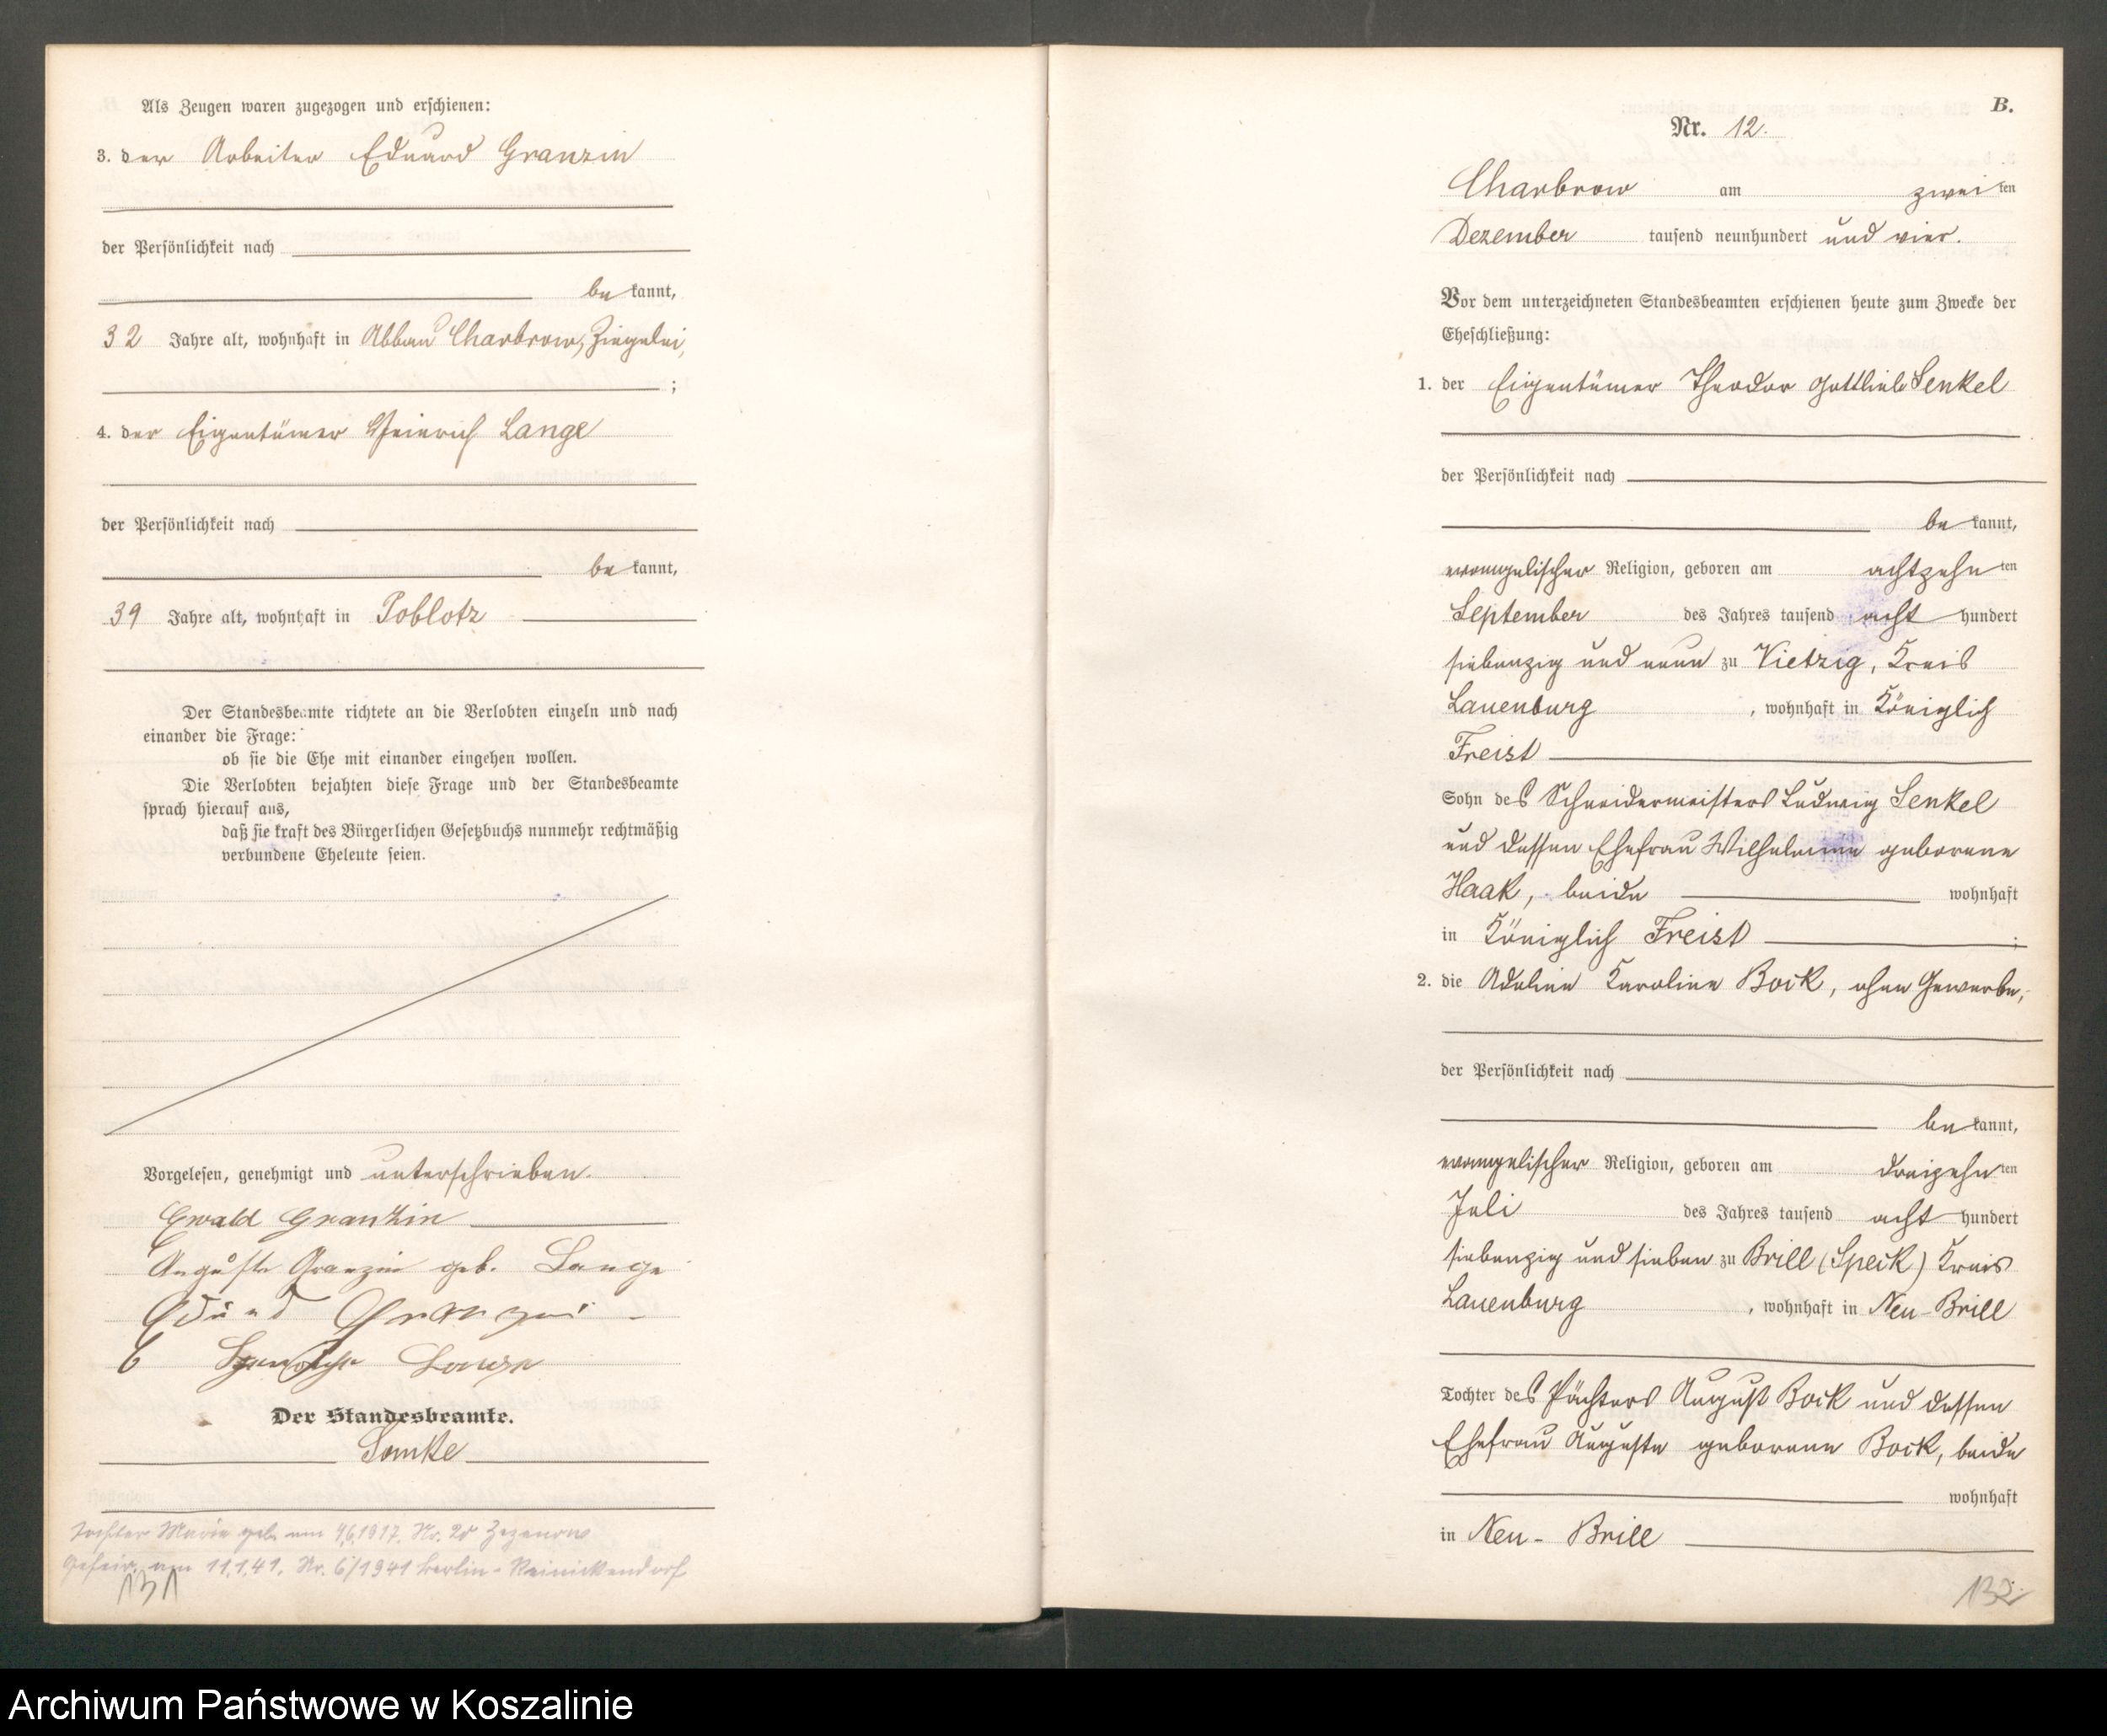 Als Zeugen waren zugezogen und erschienen:
3. der Arbeiter Eduard Granzin
der Persönlichkeit nach
be kannt,
32 Jahre alt, wohnhaft in Abbau Charbrow, Ziegelei,
;
4. der Eigentümer Heinrich Lange
der Persönlichkeit nach
be kannt,
39 Jahre alt, wohnhaft in Poblotz
Der Standesbeamte richtete an die Verlobten einzeln und nach
einander die Frage:
ob sie die Ehe mit einander eingehen wollen.
Die Verlobten bejahten diese Frage und der Standesbeamte
sprach hierauf aus,
daß sie kraft des Bürgerlichen Gesetzbuchs nunmehr rechtmäßig
verbundene Eheleute seien.
Vorgelesen, genehmigt und unterschrieben.
Ewald Granzin
Auguste Granzin geb. Lange
Granzin
Lange
Der Standesbeamte.
Tochter Marie geb. am 4.6.1917. Nr. 20 Zezenow
Geheir. am 11.1.41. Nr. 6/1941 Berlin-Reinickendorf
131
B.
Nr. 12.
Charbrow am zwei ten
Dezember tausend neunhundert und vier.
Vor dem unterzeichneten Standesbeamten erschienen heute zum Zwecke der
Eheschließung:
1. der Eigentümer Theodor Gottlieb Senkel
der Persönlichkeit nach
be kannt,
evangelischer Religion, geboren am achtzehn ten
September des Jahres tausend acht hundert
siebenzig und neun zu Vietzig, Kreis
Lauenburg, wohnhaft in Königlich
Freist
Sohn des Schneidermeisters Ludwig Senkel
und dessen Ehefrau Wilhelmine geborene
Haak, beide wohnhaft
in Königlich Freist ;
2. die Adeline Karoline Bock, ohne Gewerbe,
der Persönlichkeit nach
be kannt,
evangelischer Religion, geboren am dreizehn ten
Juli des Jahres tausend acht hundert
siebenzig und sieben zu Brill (Speck) Kreis
Lauenburg, wohnhaft in Neu-Brill
Tochter des Pächters August Bock und dessen
Ehefrau Auguste geborene Bock, beide
wohnhaft
in Neu-Brill
132
Archiwum Państwowe w Koszalinie